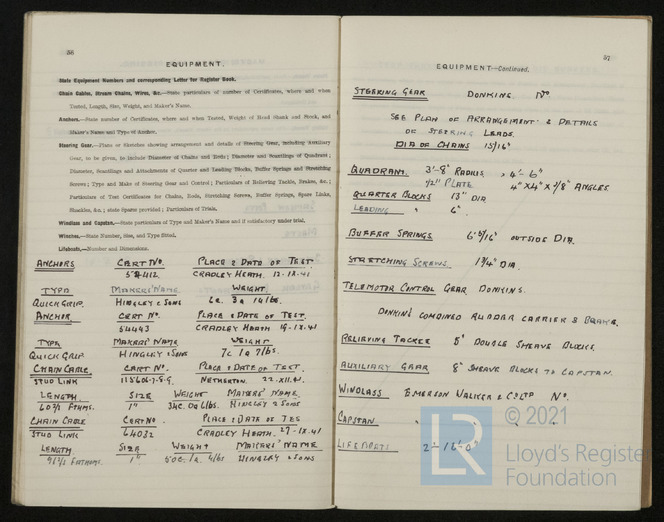 56
EQUIPMENT.
State Equipment Numbers and corresponding Letter for Register Book.
Chain Cables, Stream Chains, Wires, &c.—State particulars of number of Certificates, where and when
Tested, Length, Size, Weight, and Maker's Name.
Anchors.—State number of Certificates, where and when Tested, Weight of Head Shank and Stock, and
Maker's Name and Type of Anchor.
Steering Gear.—Plans or Sketches showing arrangement and details of Steering Gear, including Auxiliary
Gear, to be given, to include Diameter of Chains and Rods; Diameter and Scantlings of Quadrant;
Diameter, Scantlings and Attachments of Quarter and Leading Blocks, Buffer Springs and Stretching
Screws; Type and Make of Steering Gear and Control; Particulars of Relieving Tackle, Brakes, &c.;
Particulars of Test Certificates for Chains, Rods, Stretching Screws, Buffer Springs, Spare Links,
Shackles, &c.; state Spares provided; Particulars of Trials.
Windlass and Capstan.—State particulars of Type and Maker's Name and if satisfactory under trial.
Winches.—State Number, Size, and Type fitted.
Lifeboats.—Number and Dimensions.
ANCHORS CERT No. PLACE & DATE OF TEST
CRADLEY HEATH. 12.12.41
TYPE MAKERS' NAME WEIGHT
QUICK GRIP. HINGLEY & SONS 6c. 3q 14lbs.
ANCHOR CERT No PLACE & DATE OF TEST.
64443 CRADLEY HEATH 19.12.41
TYPE MAKERS' NAME WEIGHT
QUICK GRIP HINGLEY & SONS 7c 1q 7lbs.
CHAIN CABLE CERT No. PLACE & DATE OF TEST.
STUD LINK NETHERTON. 22.XII.41.
LENGTH. SIZE WEIGHT MAKERS' NAME.
60 3/4 FTHMS. 1" 34c. 0q 6lbs. HINGLEY & SONS
CHAIN CABLE CERT No. PLACE & DATE OF TES
STUD LINK 64032 CRADLEY HEATH. 27.IX.41
LENGTH SIZE WEIGHT MAKERS' NAME
FATHOMS. 1" 50c. 1q. 4lbs HINGLEY & SONS
57
EQUIPMENT—Continued.
STEERING GEAR DONKINS No
SEE PLAN OF ARRANGEMENT & DETAILS
OF STEERING LEADS.
DIA OF CHAINS 15/16"
QUADRANT. 3'-8" RADIUS × 4'-6"
1/2" PLATE 4" × 4" × 3/8" ANGLES
QUARTER BLOCKS 13" DIA
LEADING " 6".
BUFFER SPRINGS 6 5/16" OUTSIDE DIA.
STRETCHING SCREWS 1 3/4" DIA.
TELEMOTOR CONTROL GEAR DONKINS.
DONKIN COMBINED RUDDER CARRIER & BRAKE.
RELIEVING TACKLE 8" DOUBLE SHEAVE BLOCKS.
AUXILIARY GEAR 8" SHEAVE BLOCKS TO CAPSTAN.
WINDLASS EMERSON WALKER & Co LTD No.
CAPSTAN " " "
LIFEBOATS 2 - 16'-0"
© 2021
Lloyd's Register
Foundation